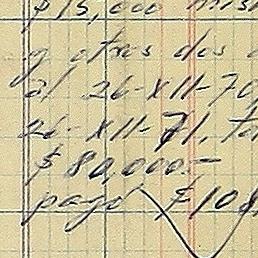 $15,000
y otros dos a
al 26-XII-70
26-XII-71, to
$80,000.-
pagó $108